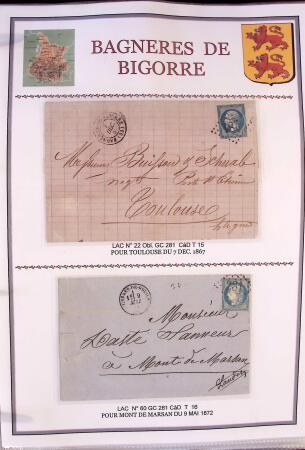 BAGNERES DE
BIGORRE
Messieurs Buisson & Schwab
Negt
Toulouse
LAC N° 22 Obl. GC 281 CàD T 15
POUR TOULOUSE DU 7 DEC. 1867
9
Monsieur
Tanneur
à Mont de Marsan
Landes
LAC N° 60 GC 281 CàD T 16
POUR MONT DE MARSAN DU 9 MAI 1872